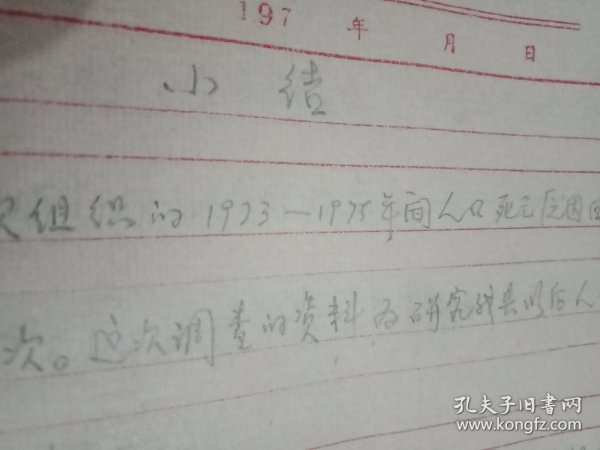 197 年 月 日
小结
次组织的1973—1975年间人口死亡原因回
次。这次调查的资料为研究我县以后人
孔夫子旧书网
www.kongfz.com